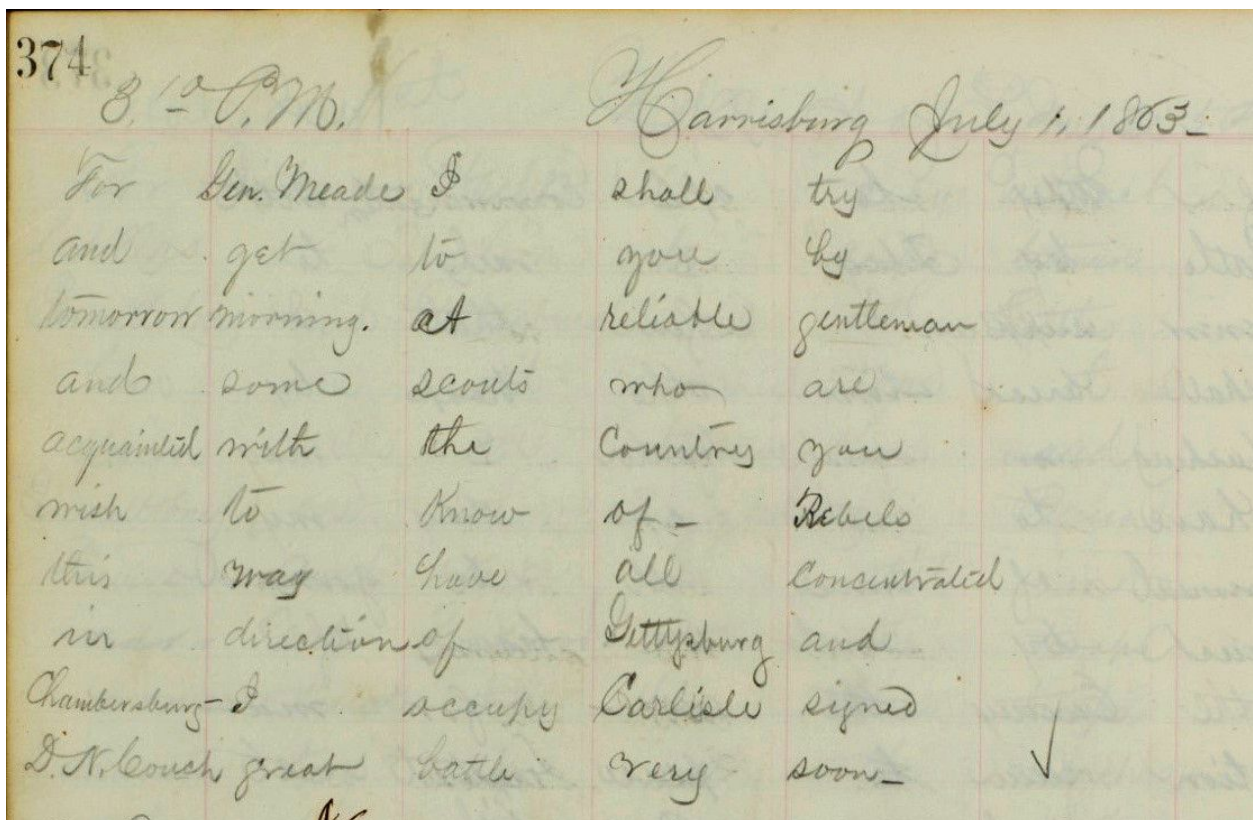 374
8.10 P.M. Harrisburg July 1, 1863_
For Gen. Meade I shall try
and get to you by
tomorrow morning. at reliable gentleman
and some scouts who are
acquainted with the Country you
wish to Know of _ Rebels
this way have all concentrated
in direction of Gettysburg and
Chambersburg_ I occupy Carlisle signed
D. N. Couch great battle very soon_